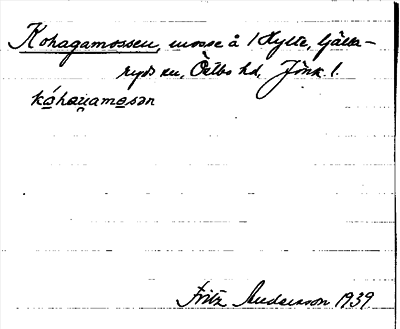 Kohagamossen, mosse å 1 Hylte, Gälla-
ryds sn, Östbo hd, Jönk. l.
kóhaɡamosən
Fritz Andersson 1939